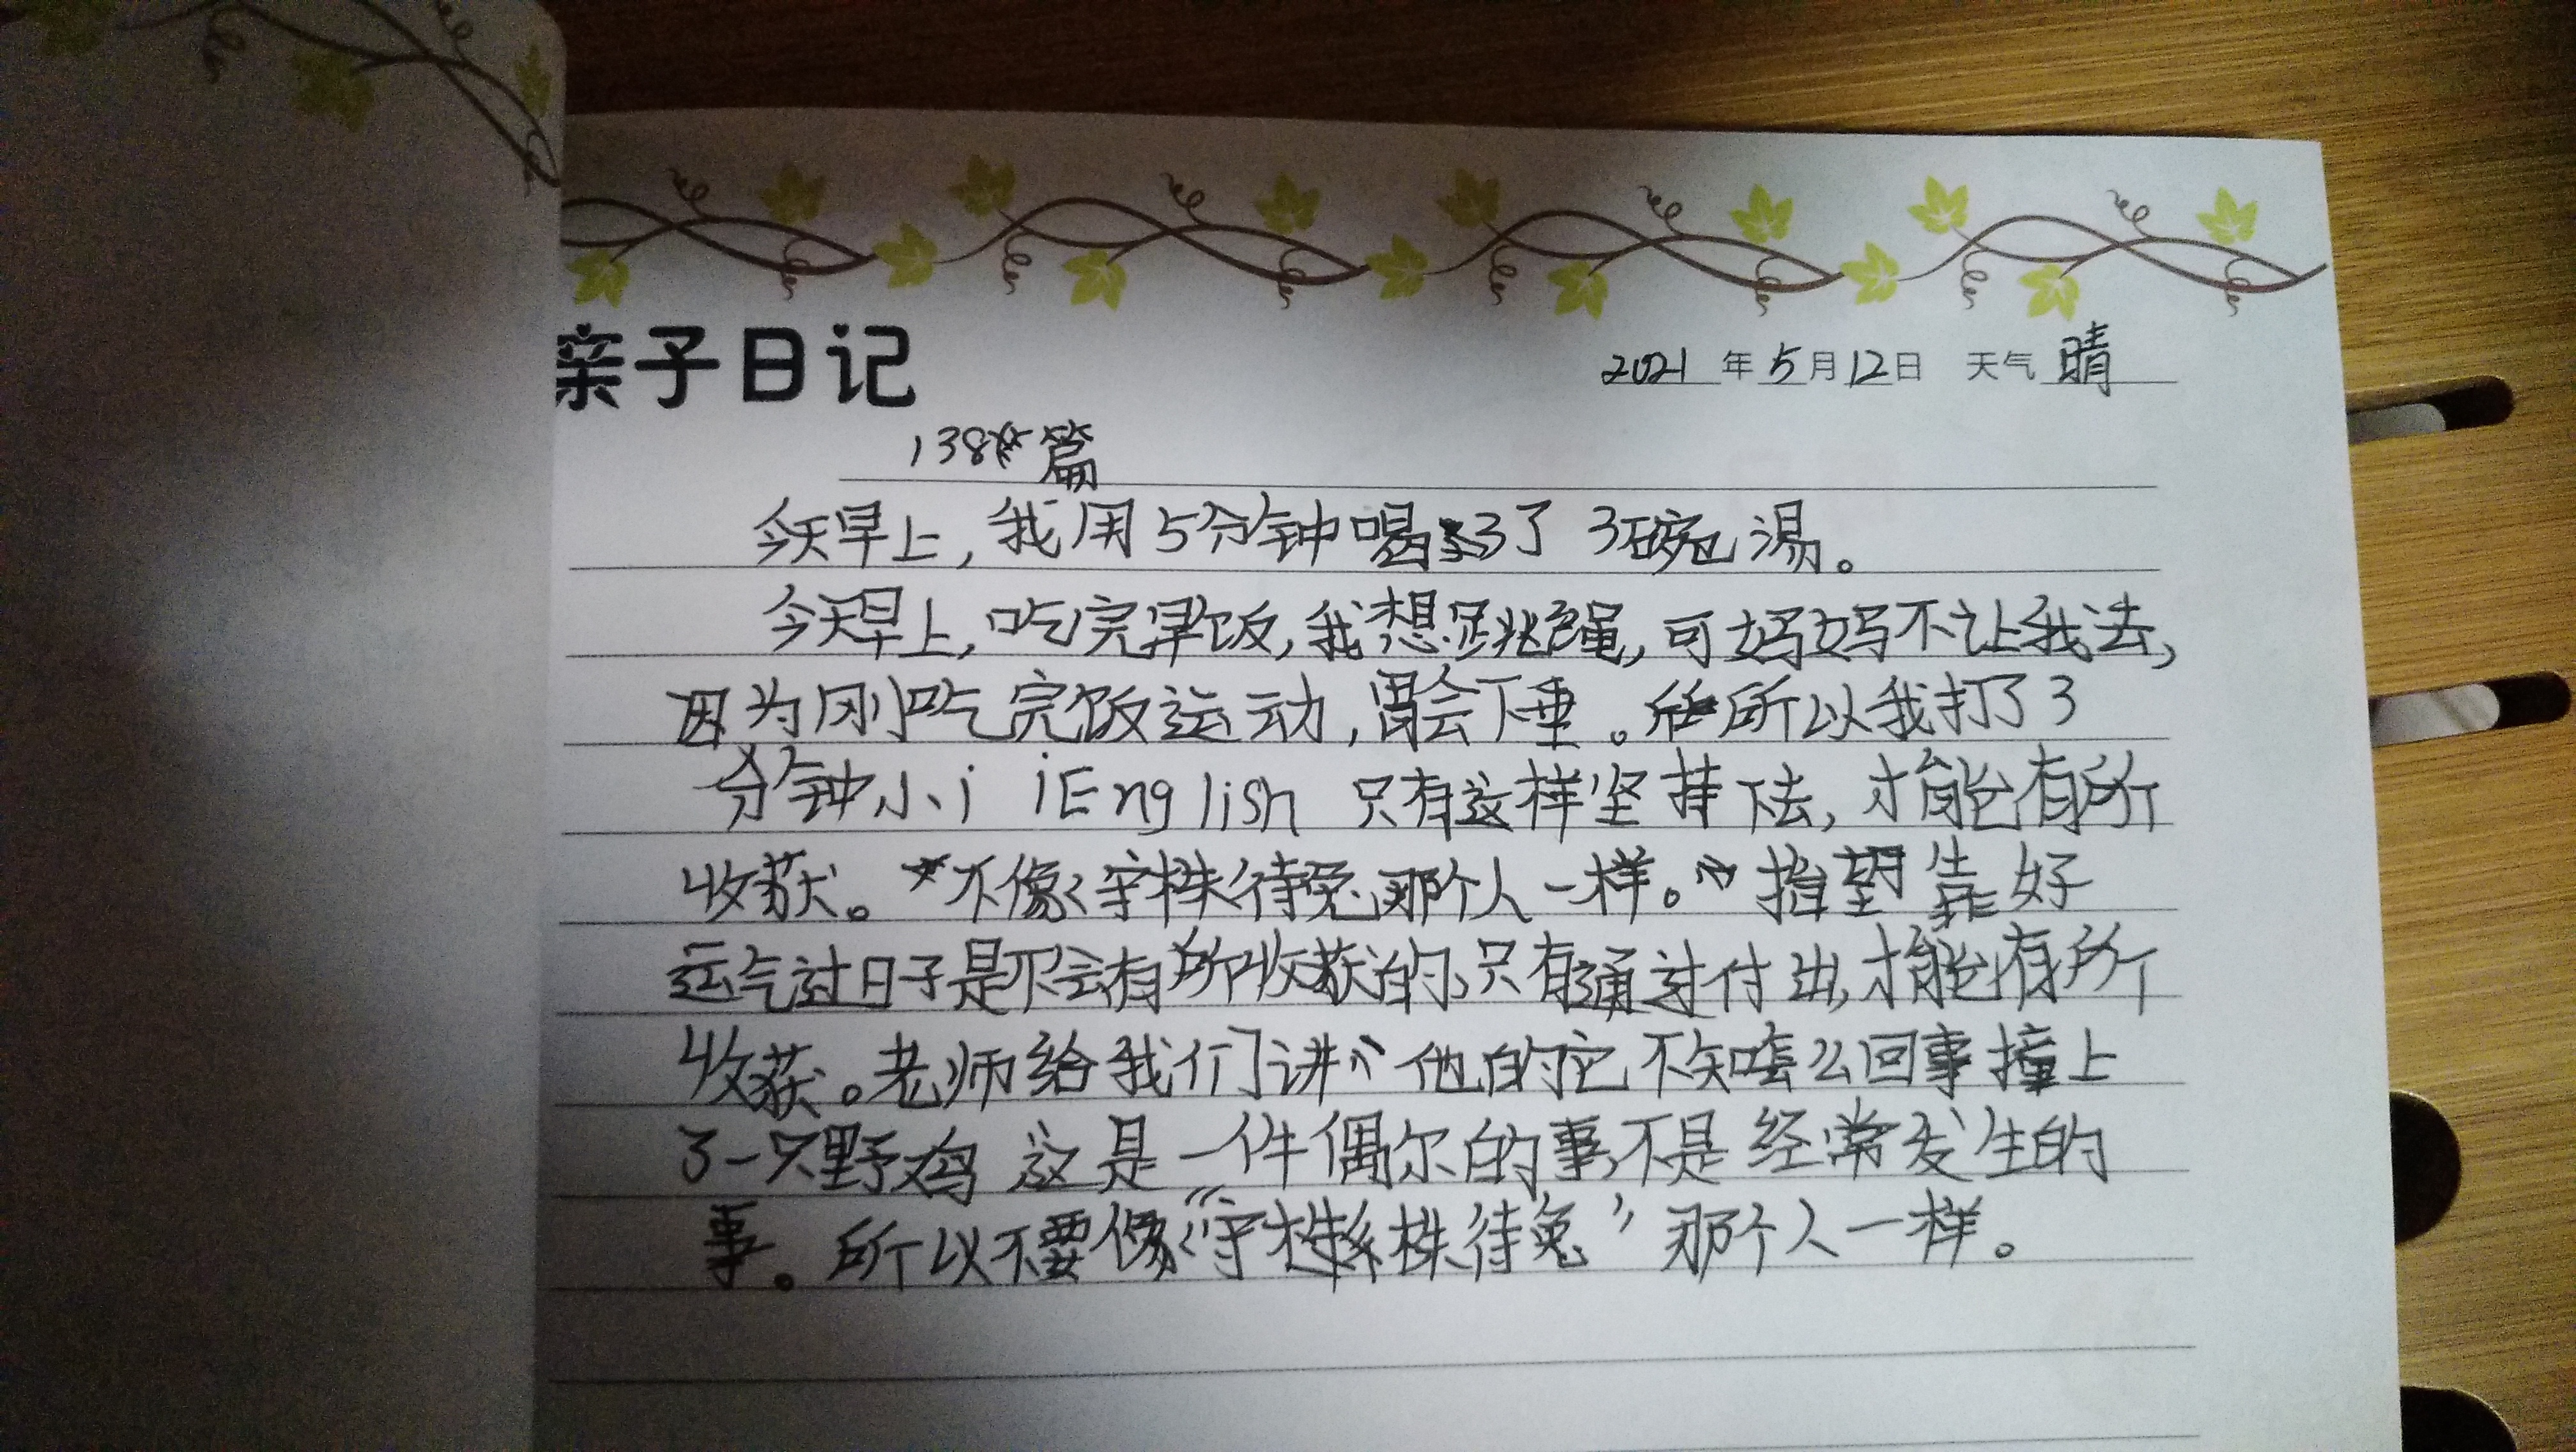 亲子日记
2021年5月12日 天气 晴
138篇
今天早上,我用5分钟喝了3碗汤。
今天早上,吃完早饭,我想跳绳,可妈妈不让我去,
因为刚吃完饭运动,胃会下垂。所以我打了3
分钟小i iEnglish 只有这样坚持下去,才能有所
收获。不像《守株待兔那个人一样。指望靠好
运气过日子是不会有所收获的,只有通过付出,才能有所
收获。老师给我们讲“他的它不知咋么回事撞上
了一只野鸡 这是一件偶尔的事,不是经常发生的
事。所以不要像“守株待兔”那个人一样。